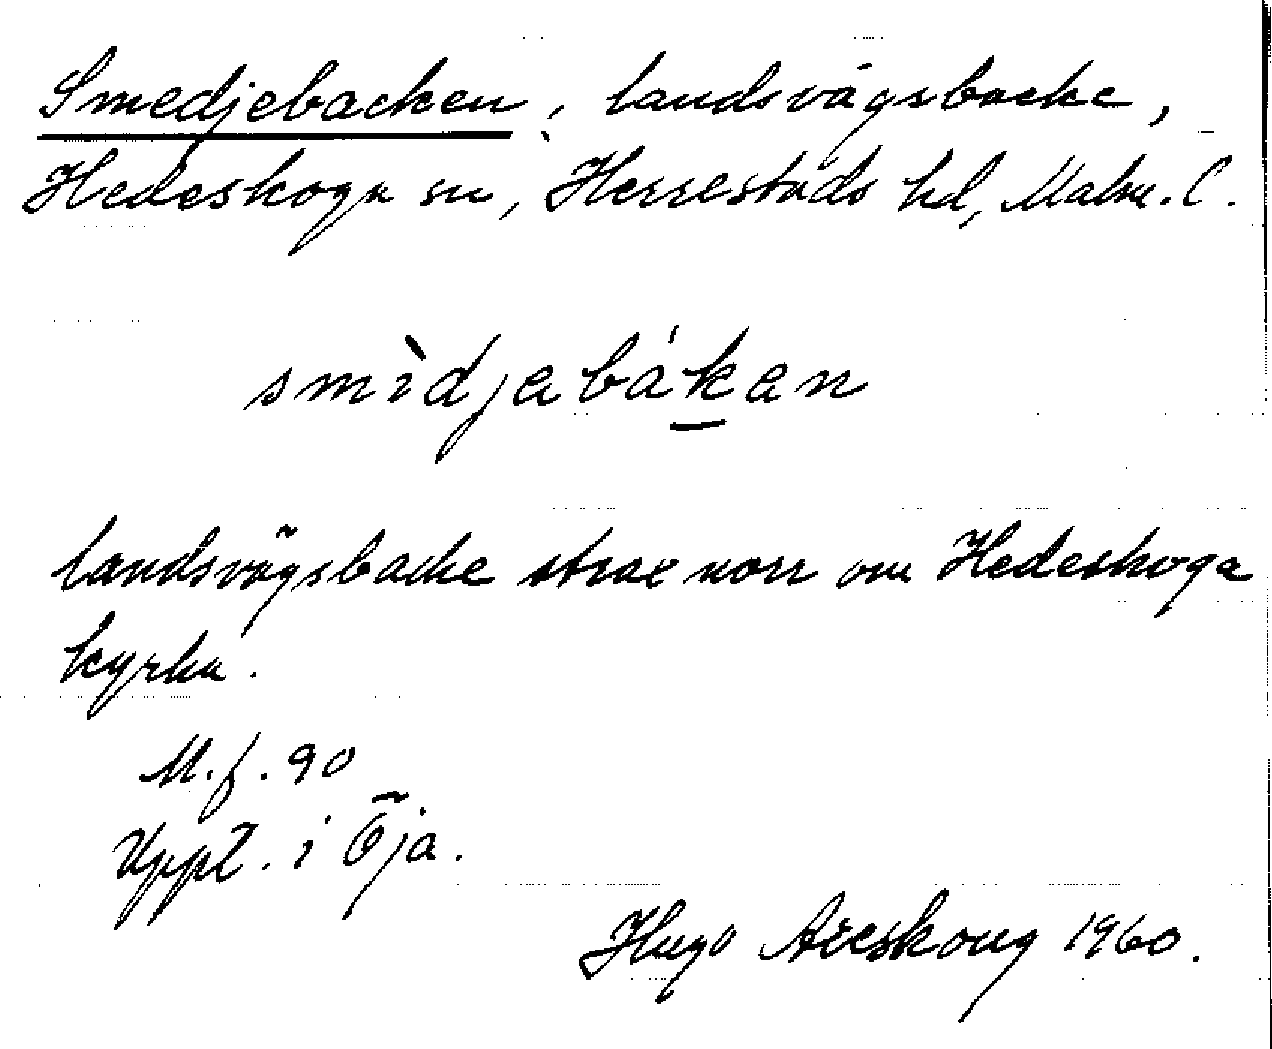 Smedjebacken, landsvägsbacke,
Hedeskoga sn, Herrestads hd, Malm. l.
smìdjabákan
landsvägsbacke strax norr om Hedeskoga
kyrka.
M. f. 90
Uppt. i Öja.
Hugo Areskoug 1960.